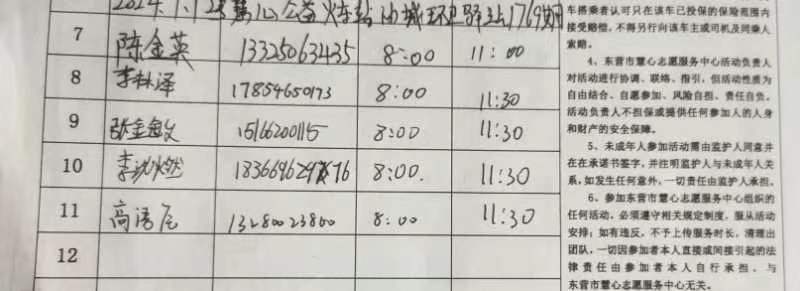 7 陈金英 13325063435 8:00 11:00
8 李林泽 17854650173 8:00 11:30
9 15166200115 8:00 11:30
10 8:00. 11:30
11 8:00 11:30
12
车搭乘者认可只在该车已投保的保险范围内
接受赔偿，不得另行向该车主或司机及同乘人
索赔。
4、东营市慧心志愿服务中心活动负责人
对活动进行协调、联络、指引，但活动性质为
自由结合、自愿参加、风险自担、责任自负，
活动负责人不担保或提供任何参加人的人身
和财产的安全保障。
5、未成年人参加活动需由监护人同意并
在在承诺书签字，并注明监护人与未成年人关
系，如发生任何意外，一切责任由监护人承担。
6、参加东营市慧心志愿服务中心组织的
任何活动，必须遵守相关规定制度，服从活动
安排；如有违反，不予上传服务时长，清理出
团队，一切因参加者本人直接或间接引起的法
律责任由参加者本人自行承担，与
东营市慧心志愿服务中心无关。